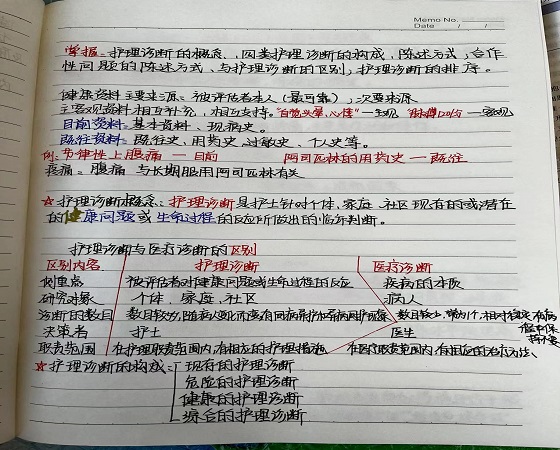 Memo No.
Date / /
掌握：护理诊断的概念、四类护理诊断的构成，陈述方式，合作
性问题的陈述方式，与护理诊断的区别，护理诊断的排序。
健康资料主要来源：被评估者本人（最可靠），次要来源
主客观资料相互补充，相互支持。"自咽头晕、心悸"—主观 脉搏120次/分—客观
目前资料：基本资料、现病史。
既往资料：既往史、用药史、过敏史、个人史等。
例：节律性上腹痛—目前 阿司匹林的用药史—既往
疼痛：腹痛 与长期服用阿司匹林有关
☆护理诊断概念：护理诊断是护士针对个体、家庭、社区现存的或潜在
的健康问题或生命过程的反应所做出的临床判断。
护理诊断与医疗诊断的区别
区别内容 护理诊断 医疗诊断
侧重点 被评估者对健康问题或生命过程的反应 疾病的本质
研究对象 个体、家庭、社区 病人
诊断的数目 数目较多，随病人变化而变 数目较少，相对稳定
决策者 护士 医生
职责范围 在护理职责范围内，有相应的护理措施 在医疗职责范围内，有相应的治疗方法
☆护理诊断的构成：现存的护理诊断
危险的护理诊断
健康的护理诊断
综合的护理诊断